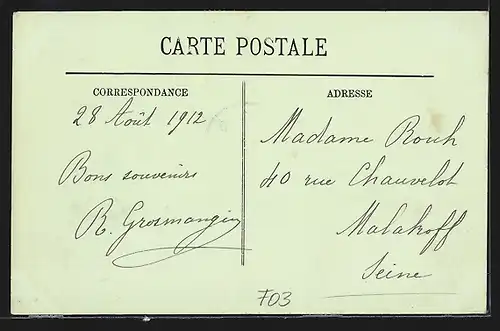 CARTE POSTALE
CORRESPONDANCE
28 Août 1912
Bons souvenirs
R. Grosmangin
ADRESSE
Madame Rouh
40 rue Chauvelot
Malakoff
Seine
F03